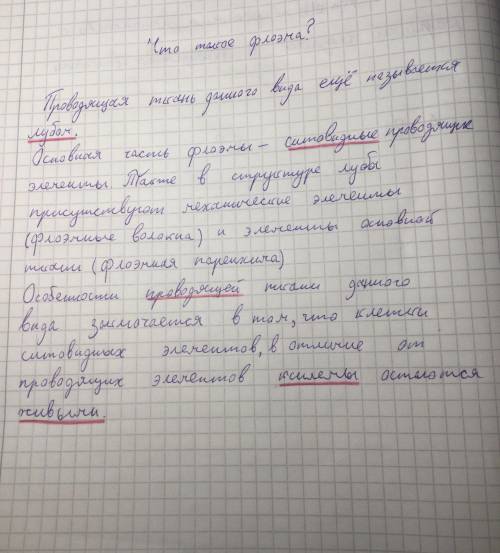 Что такое флоэма?
Проводящая ткань данного вида ещё называется
лубом.
Основная часть флоэмы – ситовидные проводящие
элементы. Также в структуре лубы
присутствуют механические элементы
(флоэмные волокна) и элементы основной
ткани (флоэмная паренхима)
Особенности проводящей ткани данного
вида заключается в том, что клетки
ситовидных элементов, в отличие от
проводящих элементов ксилемы остаются
живыми.